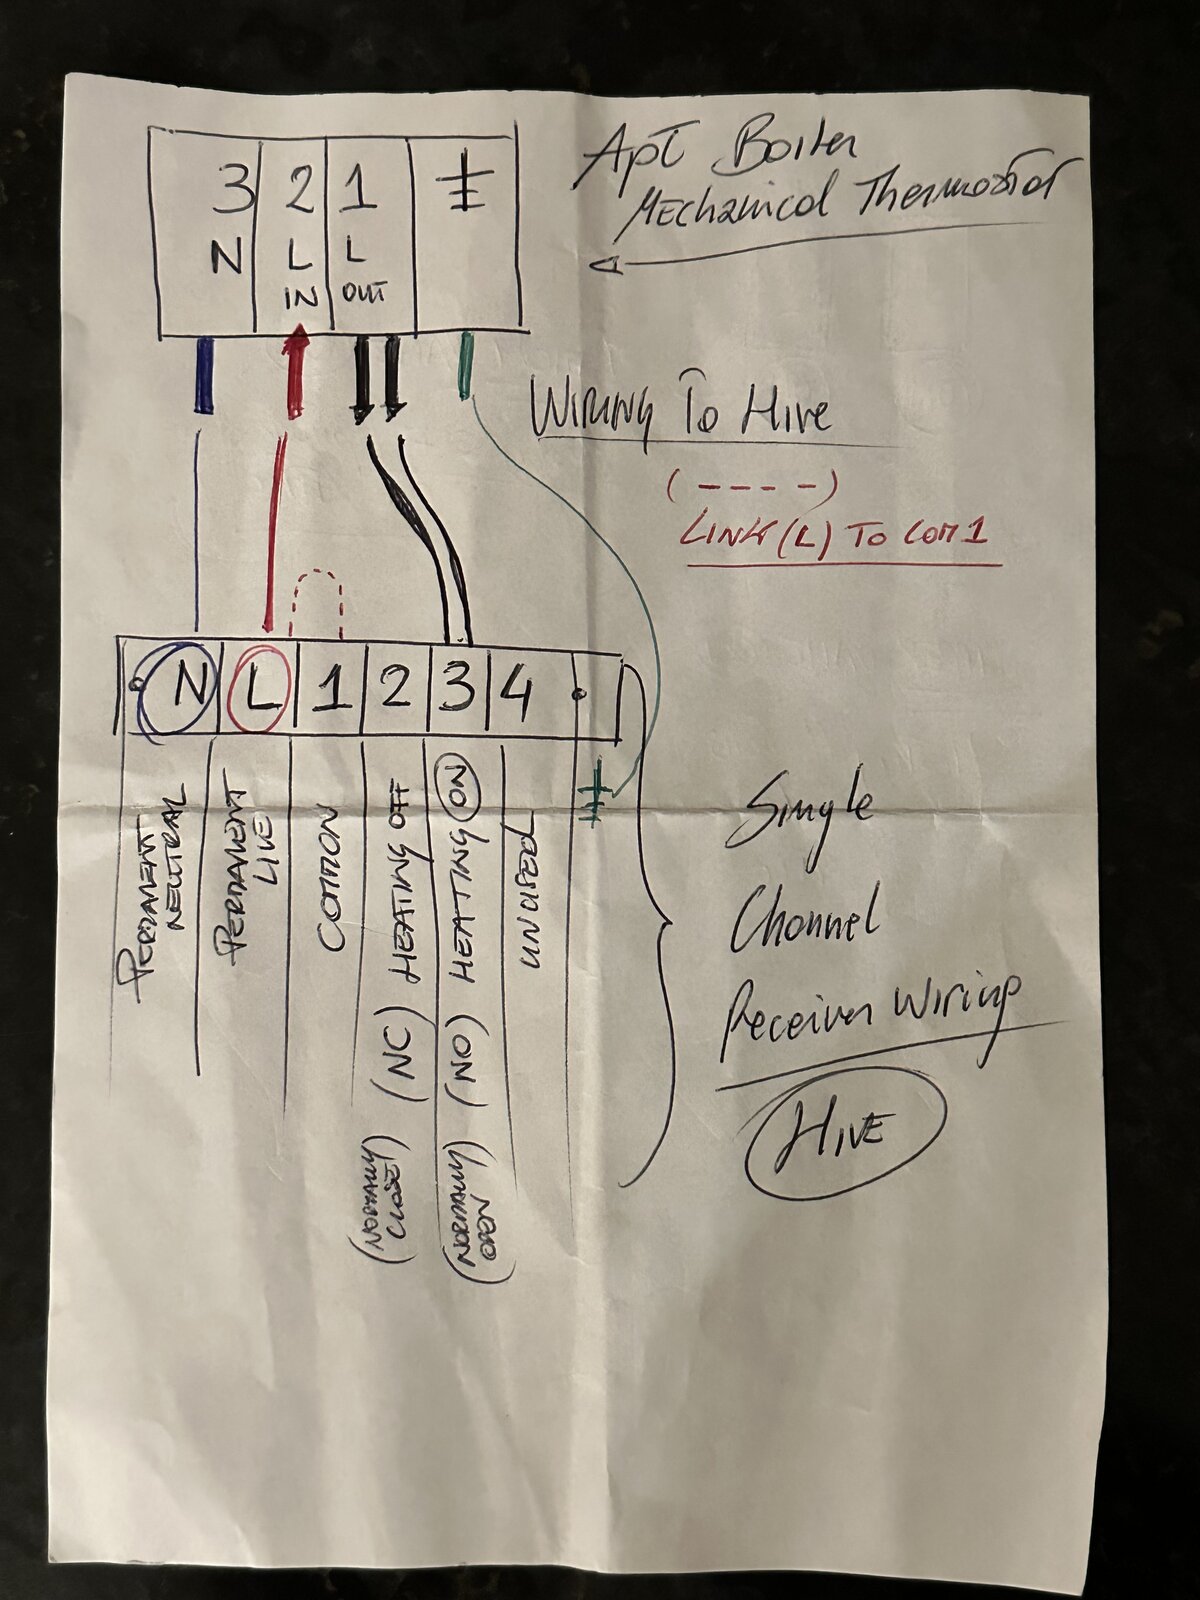 Apt Boiler
Mechanical Thermostat
3 2 1
N L L
IN OUT
WIRING To HIVE
(----)
LINK (L) To COM 1
N L 1 2 3 4
PERMAMENT
NEUTRAL
PERMAMENT
LIVE
COMMON
(NORMALLY
CLOSE) (NC) HEATING OFF
(NORMALLY
OPEN) (NO) HEATING ON
UNUSED
Single
Channel
Receiver Wiring
HIVE